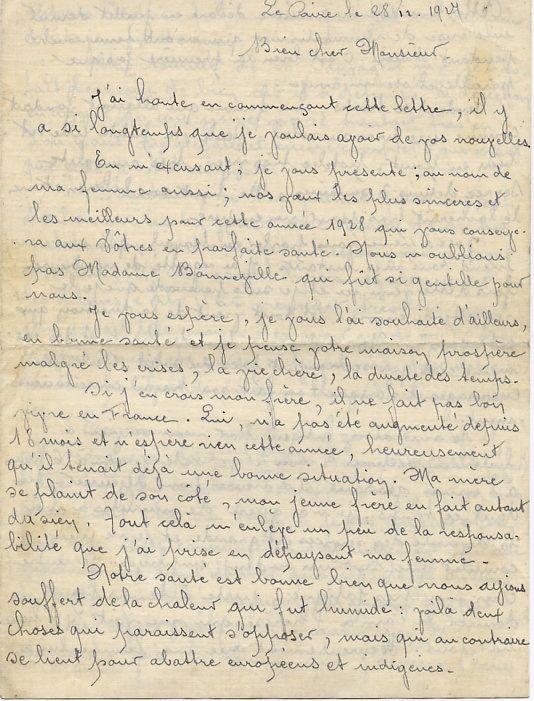 Le Caire le 28.12.1927
Bien cher Monsieur
J'ai honte en commençant cette lettre, il y
a si longtemps que je voulais avoir de vos nouvelles.
En m'excusant, je vous présente ; au nom de
ma femme aussi ; nos vœux les plus sincères et
les meilleurs pour cette année 1928 qui vous conserve-
ra aux Vôtres en parfaite santé. Nous n'oublions
pas Madame Bonneville qui fût si gentille pour
nous.
Je vous espère, je vous l'ai souhaité d'ailleurs,
en bonne santé et je pense votre maison prospère
malgré les crises, la vie chère, la dureté des temps.
Si j'en crois mon frère, il ne fait pas bon
vivre en France. Lui, n'a pas été augmenté depuis
18 mois et n'espère rien cette année, heureusement
qu'il tenait déjà une bonne situation. Ma mère
se plaint de son côté, mon jeune frère en fait autant
du sien. Tout cela m'enlève un peu de la responsa-
bilité que j'ai prise en dépaysant ma femme -
Notre santé est bonne bien que nous ayions
souffert de la chaleur qui fut humide : voilà deux
choses qui paraissent s'opposer, mais qui au contraire
se lient pour abattre européens et indigènes.